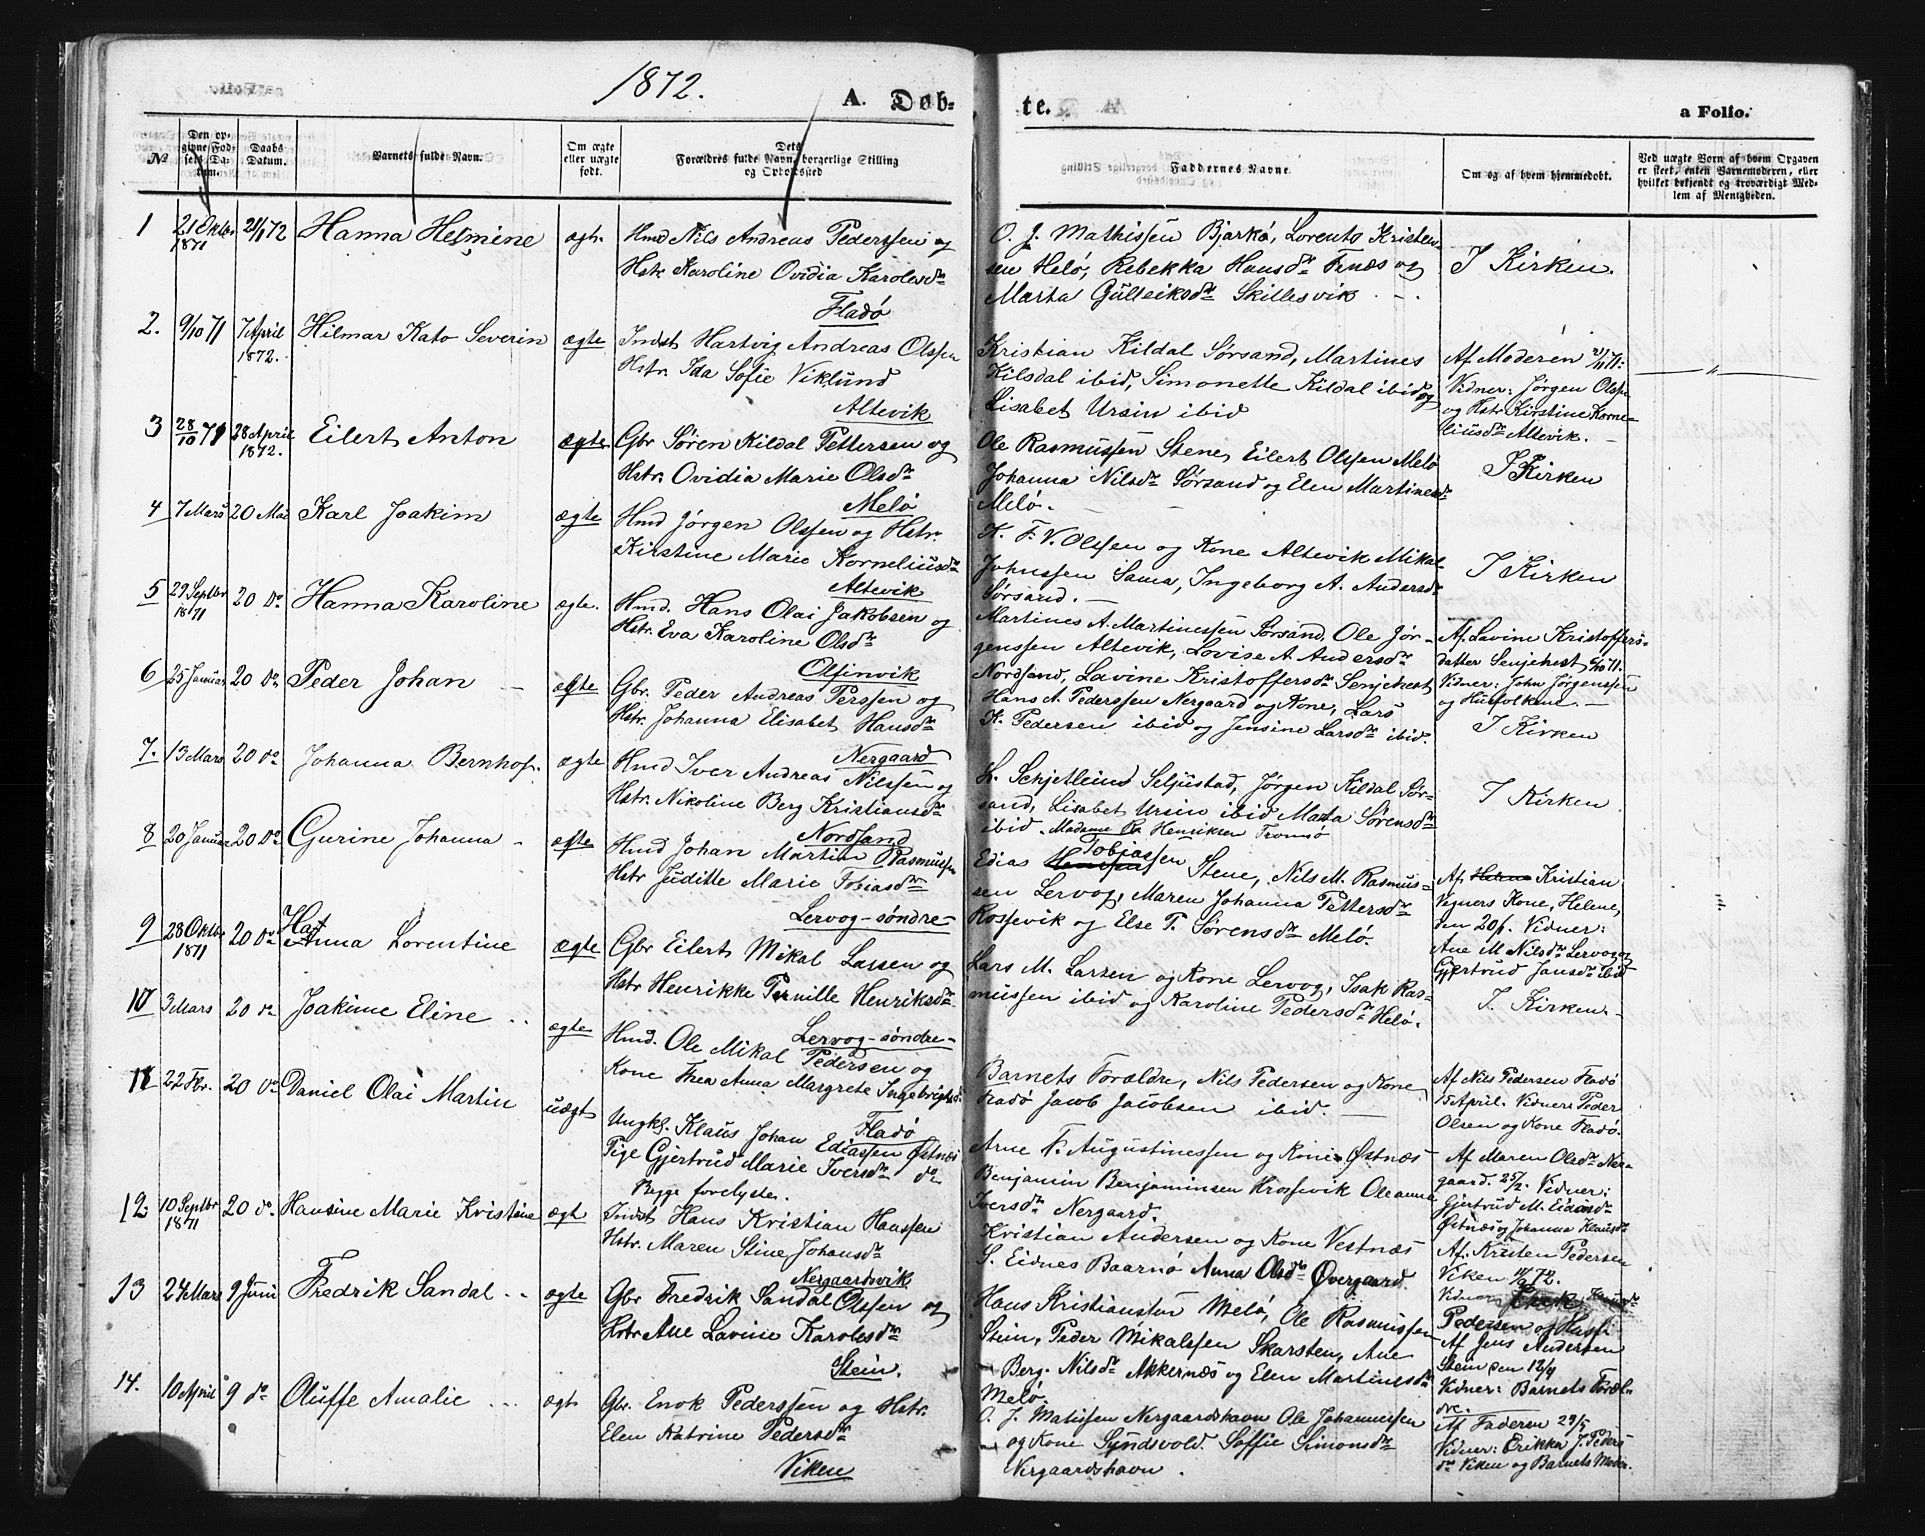 1872.
A. Døb-
te.
a Folio.
№
Den op-
givne Fød-
sels Da-
tum.
Daabs
Datum.
Barnets fulde Navn.
Om ægte
eller uægte
født.
Dets
Forældres fulde Navn, borgerlige Stilling
og Opholdssted
Faddernes Navne.
Om og af hvem hjemmedøbt.
Ved uægte Børn af hvem Opgaven
er skeet, enten Barnemoderen, eller
hvilket bekjendt og troværdigt Med-
lem af Menigheden.
1 21 Oktbr 1871 21/1 72 Hanna Helmine ægte
Hmd Nils Andreas Pederssen og
Hstr Karoline Ovidia Karolesdr
Fladø
O. J. Mathissen Bjarkø, Lorents Kristen-
sen Helø, Rebekka Hansdr Fenæs og
Marta Gulleiksdr Skillesvik
I Kirken.
2. 9/10 71 7 April 1872. Hilmar Kato Severin ægte
Indst Hartvig Andreas Olssen
Hstr. Ida Sofie Viklund
Altevik
Kristian Kildal Sørsand, Martines
Kilsdal ibid, Simonette Kildal ibid og
Lisabet Ursin ibid
Af Moderen 21/11 71.
Vidner: Jørgen Olssen
og Hstr Kirstine Korne-
liusdr Altevik.
3 28/10 71 28 April 1872. Eilert Anton ægte
Gbr Søren Kildal Pettersen og
Hstr. Ovidia Marie Olsdr
Melø
Ole Rasmussen Stene, Eilert Olssen Melø
Johanna Nilsdr Sørsand og Elen Martinesdr
Melø.
I Kirken
4 7 Mars 20 Mai Karl Joakim ægte
Hmd Jørgen Olssen og Hstr.
Kirstine Marie Korneliusdr
Altevik
K. F. V. Olssen og Kone Altevik Mikal
Johnssen Sama, Ingeborg A. Andersdr
Sørsand.
I Kirken
5 29 Septbr 1871 20 do Hanna Karoline ægte.
Hmd. Hans Olai Jakobsen og
Hstr. Eva Karoline Olsdr
Olfinvik
Martines A. Martinessen Sørsand, Ole Jør-
genssen Altevik, Lovise A. Andersdr
Nordsand, Lavine Kristoffersdr Senjehest
Af Lavine Kristoffers-
datter Senjehest 71.
Vidner: John Jørgenssen
og Husfolkene.
6 25 Januar 20 do Peder Johan ægte
Gbr. Peder Andreas Perssen og
Hstr. Johanna Elisabet Hansdr
Nergaard
Hans A. Pederssen Nergaard og Kone, Lars
K. Pedersen ibid og Jensine Larsdr ibid.
I Kirken
7. 13 Mars 20 do Johanna Bernhof. ægte
Hmd Iver Andreas Nilssen og
Hstr. Nikoline Berg Kristiansdr
Nordsand
L. Schjetlein Seljestad, Jørgen Kildal Sør-
sand, Lisabet Ursin ibid Marta Sørensdr
ibid. Madame Henriksen Tromsø
I Kirken
8 20 Januar 20 do Gurine Johanna ægte
Hmd Johan Martin Rasmussen
Hstr Juditte Marie Tobiasdr
Lervog-søndre
Edias Tobiassen Stene, Nils M. Rasmus-
sen Lervog, Maren Johanna Pettersdr
Rossevik og Else P. Sørensdr Melø.
Af Kristian
Vegners Kone, Helene,
den 20/1. Vidner:
Ane M. Nilsdr Lervog og
Gjertrud Jansdr ibid
9 28 Oktbr 1871 20 do Anna Lorentine ægte
Gbr Eilert Mikal Larsen og
Hstr Henrikke Pernille Henriksdr
Lervog-søndre
Lars M. Larsen og Kone Lervog, Isak Ras-
mussen ibid og Karoline Pedersdr Helø.
I. Kirken
10 3 Mars 20 do Joakime Eline ægte
Hmd. Ole Mikal Pedersen og
Kone Thea Anna Margrete Ingebrigtsdr
Fladø
Barnets Forældre, Nils Pedersen og Kone
Fladø Jacob Jacobsen ibid.
Af Nils Pedersen Fladø
15 April. Vidner: Peder
Olsen og Kone Fladø.
11 22 Fbr. 20 do Daniel Olai Martin uægt
Ungk. Klaus Johan Ediassen Østnæs
Pige Gjertrud Marie Iversdr do
Begge forelyste.
Arne F. Augustinessen og Kone Østnæs
Benjamin Benjaminsen Krossevik Oleanna
Iversdr Nergaard.
Af Maren Olsdr Ner-
gaard. 25/2. Vidner:
Gjertrud M. Eidisdr
Østnæs og Johanna Klausdr
12 10 Septbr 1871 20 do Hansine Marie Kristine ægt
Indst Hans Kristian Hanssen
Hstr. Maren Stine Johansdr
Nergaardsvik
Kristian Andersen og Kone Vestnæs
S. Eidnes Baarnø Anna Olsdr Øvergaard
Af Kristen Pedersen
Viken 72.
Vidner
Pedersen og
13 24 Mars 9 Juni Fredrik Sandal ægte
Gbr Fredrik Sandal Olssen og
Hstr Ane Lavine Karolesdr
Stein.
Hans Kristianssen Melø, Ole Rasmussen
Stein, Peder Mikalssen Skarsten, Ane
Berg. Nilsdr Akkernæs og Elen Martinesdr
Melø.
Af Jens Andersen
Stein den 12/4
Vidner: Barnets Foræl-
dre.
14. 10 April 9 do Oluffe Amalie ægt
Gbr. Enok Pederssen og Hstr.
Elen Katrine Pedersdr
Viken
O. J. Matissen Nergaardshavn Ole Johannessen
og Kone Sundsvold. Soffie Simonsdr
Nergaardshavn.
Af Faderen 29/5
Vidner: Erikka J. Peders
dr Viken og Barnets Moder.